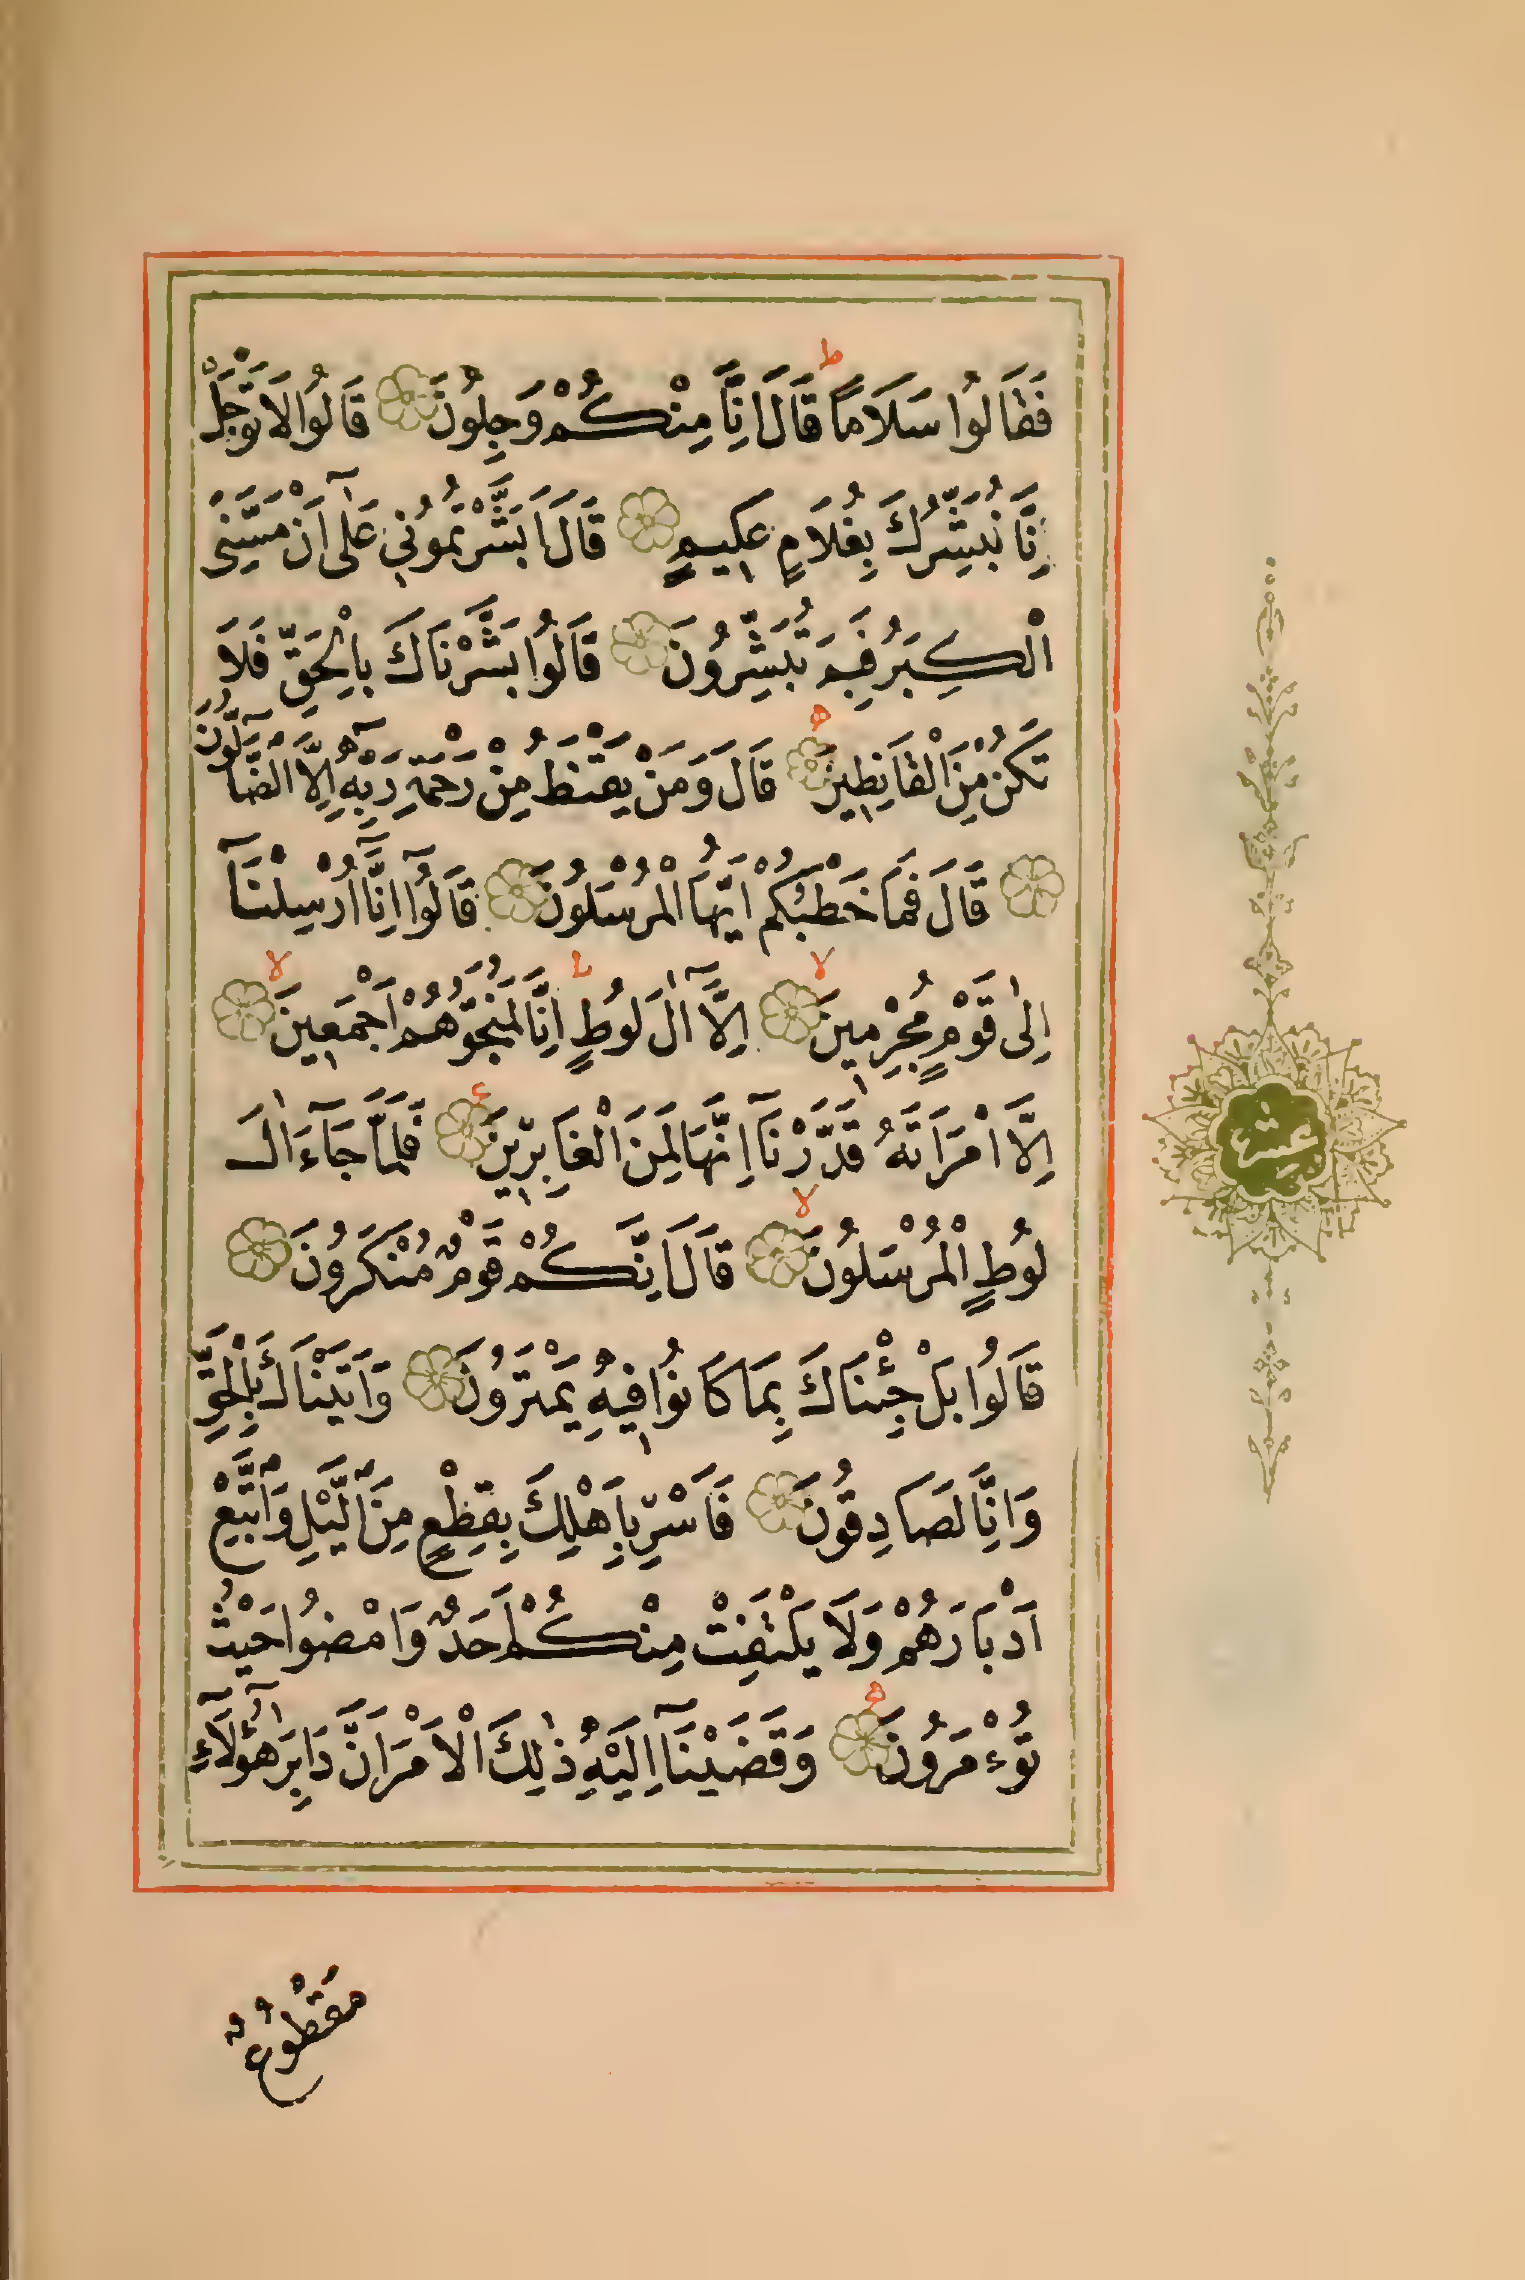 فَقَالُوا سَلَامًا ط قَالَ اِنَّا مِنْكُمْ وَجِلُونَ قَالُوا لَا تَوْجَلْ
اِنَّا نُبَشِّرُكَ بِغُلَامٍ عَلِيمٍ قَالَ اَبَشَّرْتُمُونِي عَلٰٓى اَنْ مَسَّنِيَ
الْكِبَرُ فَبِمَ تُبَشِّرُونَ قَالُوا بَشَّرْنَاكَ بِالْحَقِّ فَلَا
تَكُنْ مِنَ الْقَانِطِينَ ه قَالَ وَمَنْ يَقْنَطُ مِنْ رَحْمَةِ رَبِّهٖٓ اِلَّا الضَّآلُّونَ
قَالَ فَمَا خَطْبُكُمْ اَيُّهَا الْمُرْسَلُونَ قَالُوٓا اِنَّٓا اُرْسِلْنَٓا
اِلٰى قَوْمٍ مُجْرِمِينَ لا اِلَّٓا اٰلَ لُوطٍ ط اِنَّا لَمُنَجُّوهُمْ اَجْمَعِينَ لا
اِلَّا امْرَاَتَهُ قَدَّرْنَٓا اِنَّهَا لَمِنَ الْغَابِرِينَ ع فَلَمَّا جَٓاءَ اٰلَ
لُوطٍ الْمُرْسَلُونَ لا قَالَ اِنَّكُمْ قَوْمٌ مُنْكَرُونَ
قَالُوا بَلْ جِئْنَاكَ بِمَا كَانُوا فِيهِ يَمْتَرُونَ وَاَتَيْنَاكَ بِالْحَقِّ
وَاِنَّا لَصَادِقُونَ فَاَسْرِ بِاَهْلِكَ بِقِطْعٍ مِنَ الَّيْلِ وَاتَّبِعْ
اَدْبَارَهُمْ وَلَا يَلْتَفِتْ مِنْكُمْ اَحَدٌ وَامْضُوا حَيْثُ
تُؤْمَرُونَ ه وَقَضَيْنَٓا اِلَيْهِ ذٰلِكَ الْاَمْرَ اَنَّ دَابِرَ هٰٓؤُلَٓاءِ
مَقْطُوعٌ
عشر